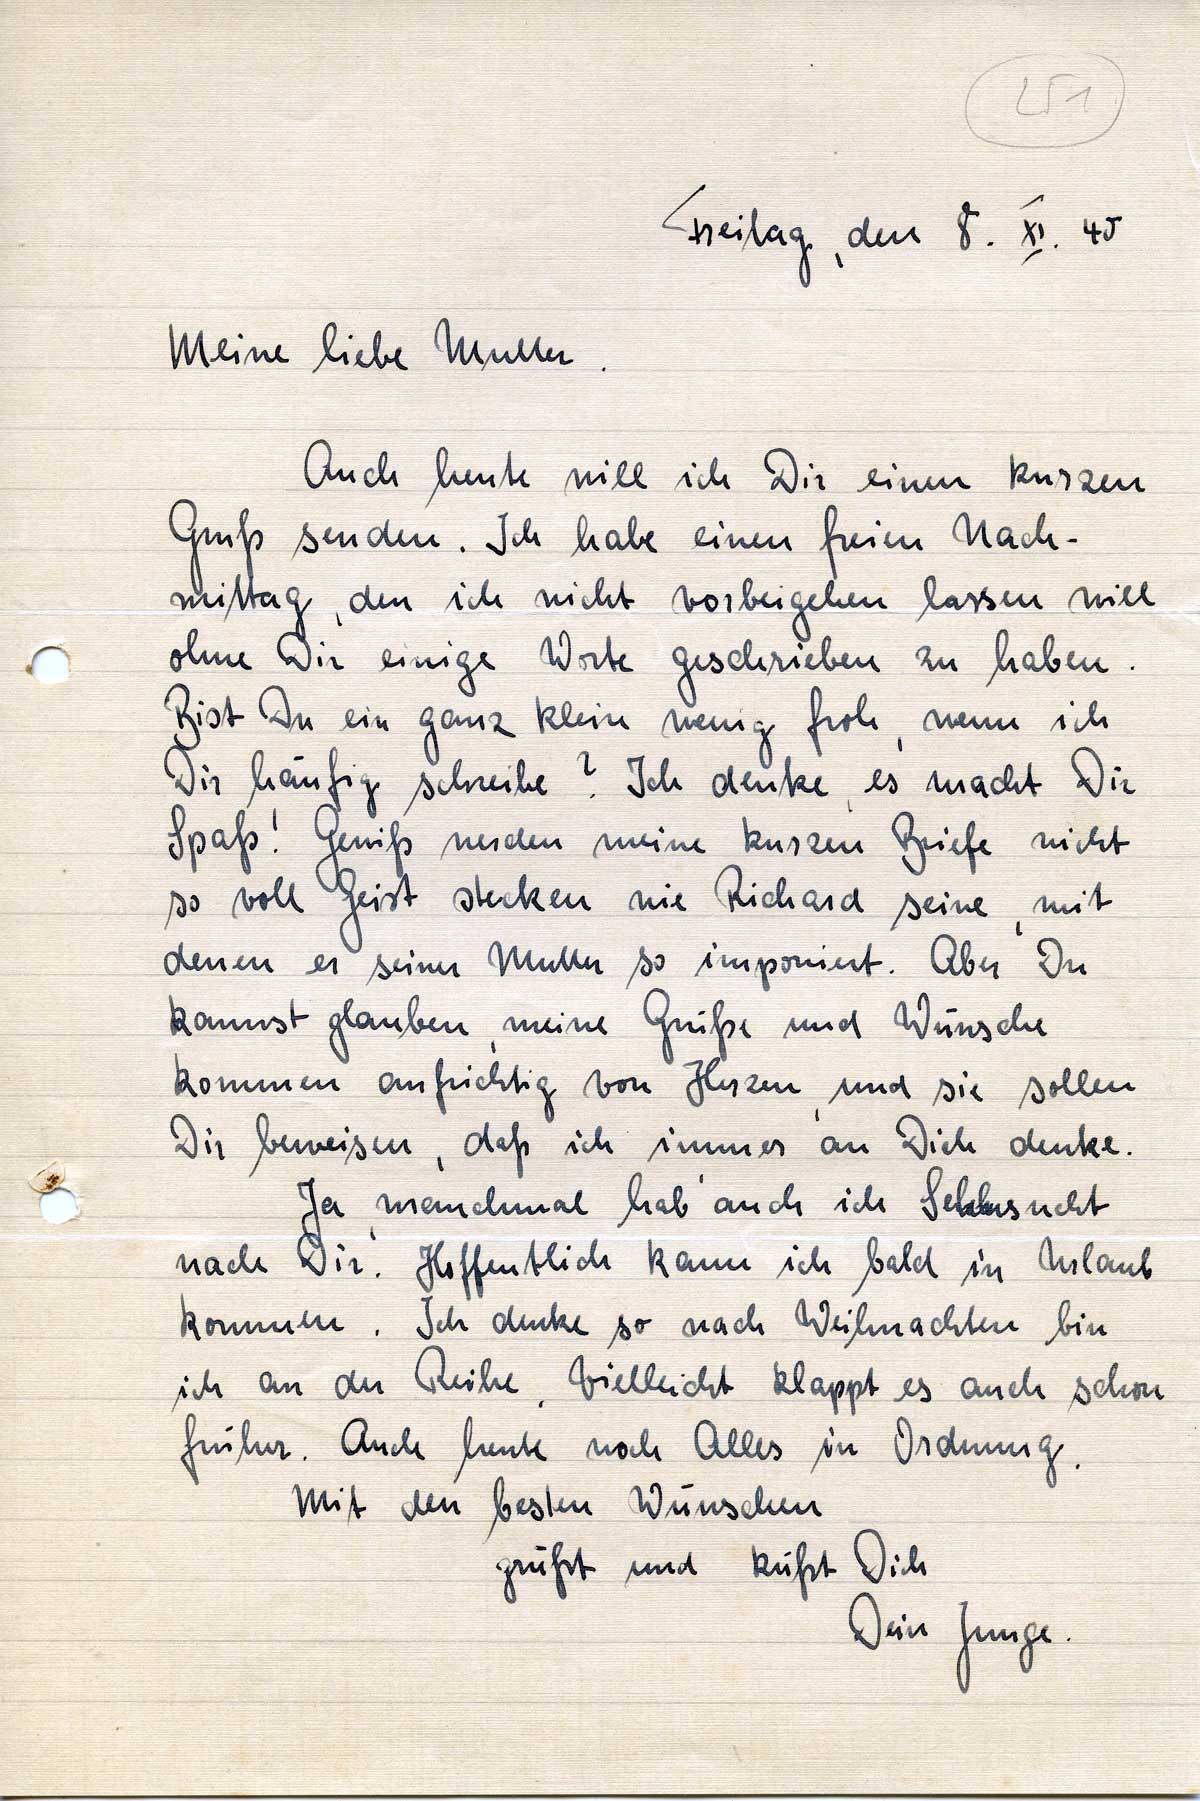 251
Freitag, den 8. XI. 40
Meine liebe Mutter.
Auch heute will ich Dir einen kurzen
Gruß senden. Ich habe einen freien Nach-
mittag, den ich nicht vorbeigehen lassen will
ohne Dir einige Worte geschrieben zu haben.
Bist Du ein ganz klein wenig froh, wenn ich
Dir häufig schreibe? Ich denke, es macht Dir
Spaß! Gewiß werden meine kurzen Briefe nicht
so voll Geist stecken wie Richard seine, mit
denen er seiner Mutter so imponiert. Aber Du
kannst glauben, meine Grüße und Wünsche
kommen aufrichtig von Herzen, und sie sollen
Dir beweisen, daß ich immer an Dich denke.
Ja, manchmal hab' auch ich Sehnsucht
nach Dir. Hoffentlich kann ich bald in Urlaub
kommen. Ich denke so nach Weihnachten bin
ich an der Reihe. Vielleicht klappt es auch schon
früher. Auch heute noch Alles in Ordnung.
Mit den besten Wünschen
grüßt und küßt Dich
Dein Junge.